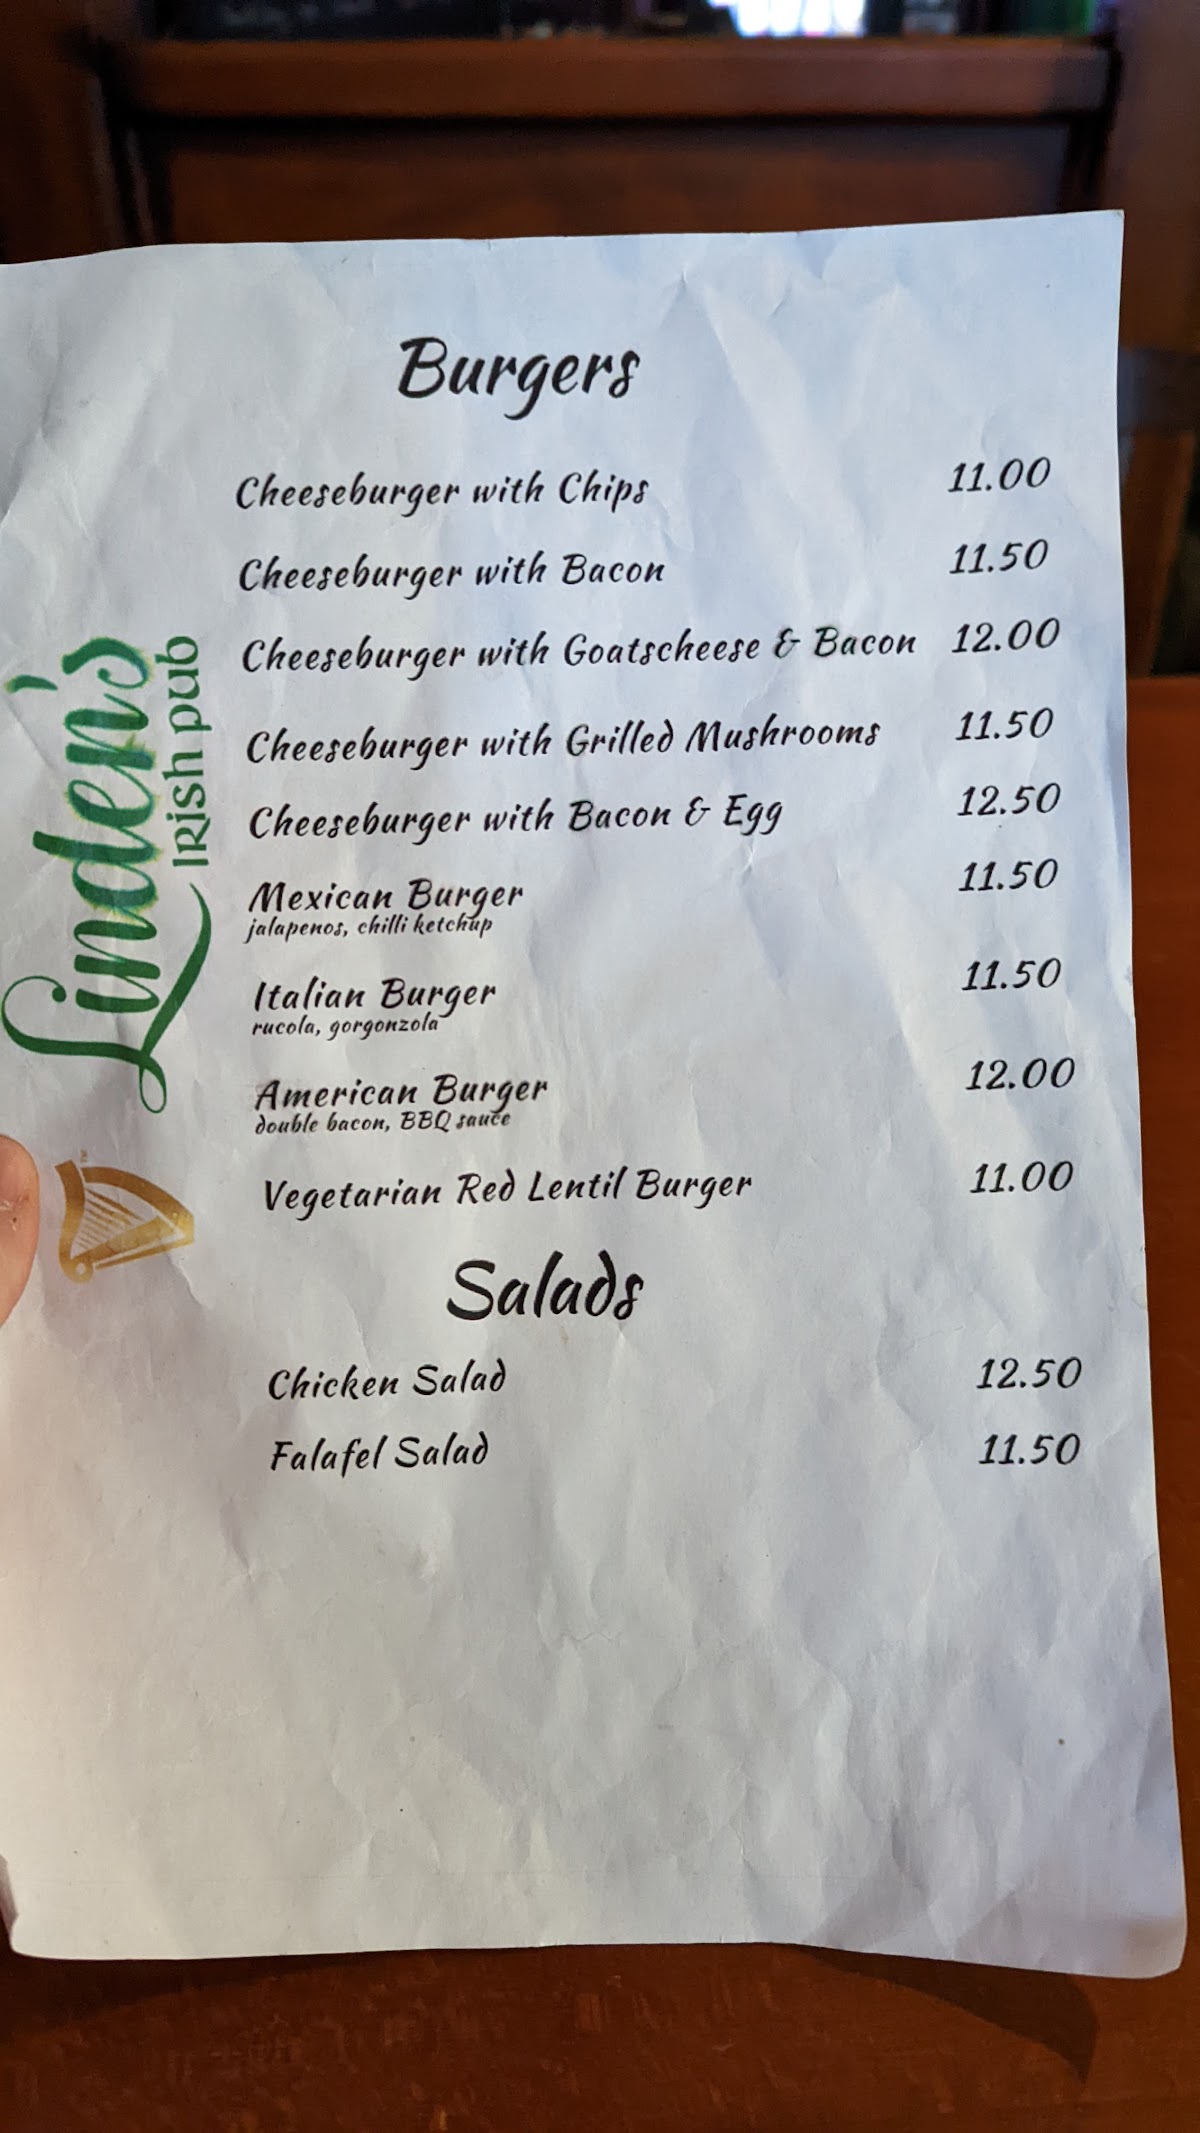 Burgers
Cheeseburger with Chips 11.00
Cheeseburger with Bacon 11.50
Cheeseburger with Goatscheese & Bacon 12.00
Cheeseburger with Grilled Mushrooms 11.50
Cheeseburger with Bacon & Egg 12.50
Mexican Burger 11.50
jalapenos, chilli ketchup
Italian Burger 11.50
rucola, gorgonzola
American Burger 12.00
double bacon, BBQ sauce
Vegetarian Red Lentil Burger 11.00
Salads
Chicken Salad 12.50
Falafel Salad 11.50
Linden's
Irish pub
TM